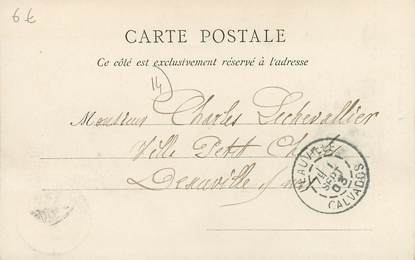 6 €
CARTE POSTALE
Ce côté est exclusivement réservé à l'adresse
14
Monsieur Charles Lechevallier
Villa Petit
Deauville s/m
DEAUVILLE
1 SEPT 03
CALVADOS